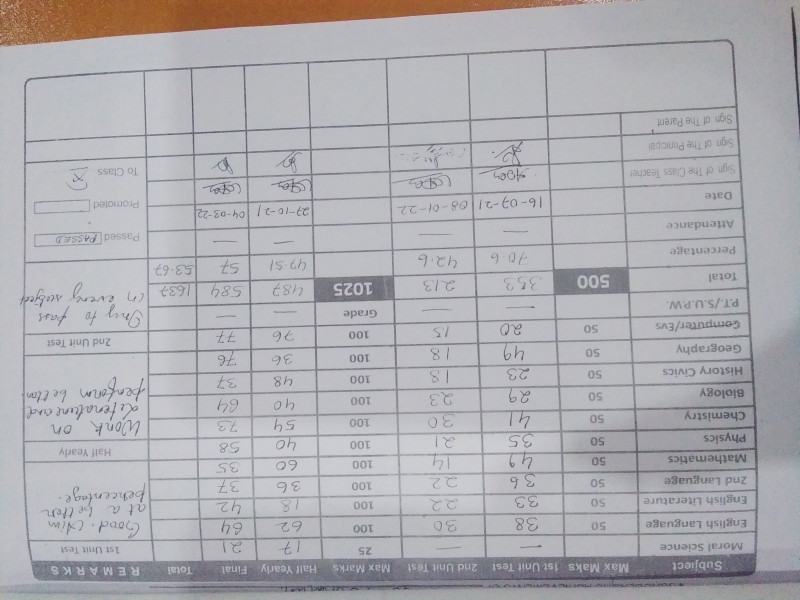 Subject Max Maks 1st Unit Test 2nd Unit Test Max Marks Half Yearly Final Total REMARKS
Moral Science — — 25 17 21 1st Unit Test
English Language 50 38 30 100 62 64 Good. Aim
English Literature 50 33 22 100 18 42 at a better
2nd Language 50 36 22 100 36 37 percentage.
Mathematics 50 49 14 100 60 35
Physics 50 35 21 100 40 58 Half Yearly
Chemistry 50 41 30 100 54 73 Work on
Biology 50 29 23 100 40 64 literature and
History Civics 50 23 18 100 48 37 perform better
Geography 50 49 18 100 36 76
Computer/Evs 50 20 15 100 76 77 2nd Unit Test
P.T./S.U.P.W. — — Grade — — to pass
Total 500 353 213 1025 487 584 1637 in every subject
Percentage 70.6 42.6 47.51 57 53.67
Attendance — — — — Passed PASSED
Date 16-07-21 08-01-22 27-10-21 04-03-22 Promoted
Sign of The Class Teacher To Class X
Sign of The Principal
Sign of The Parent